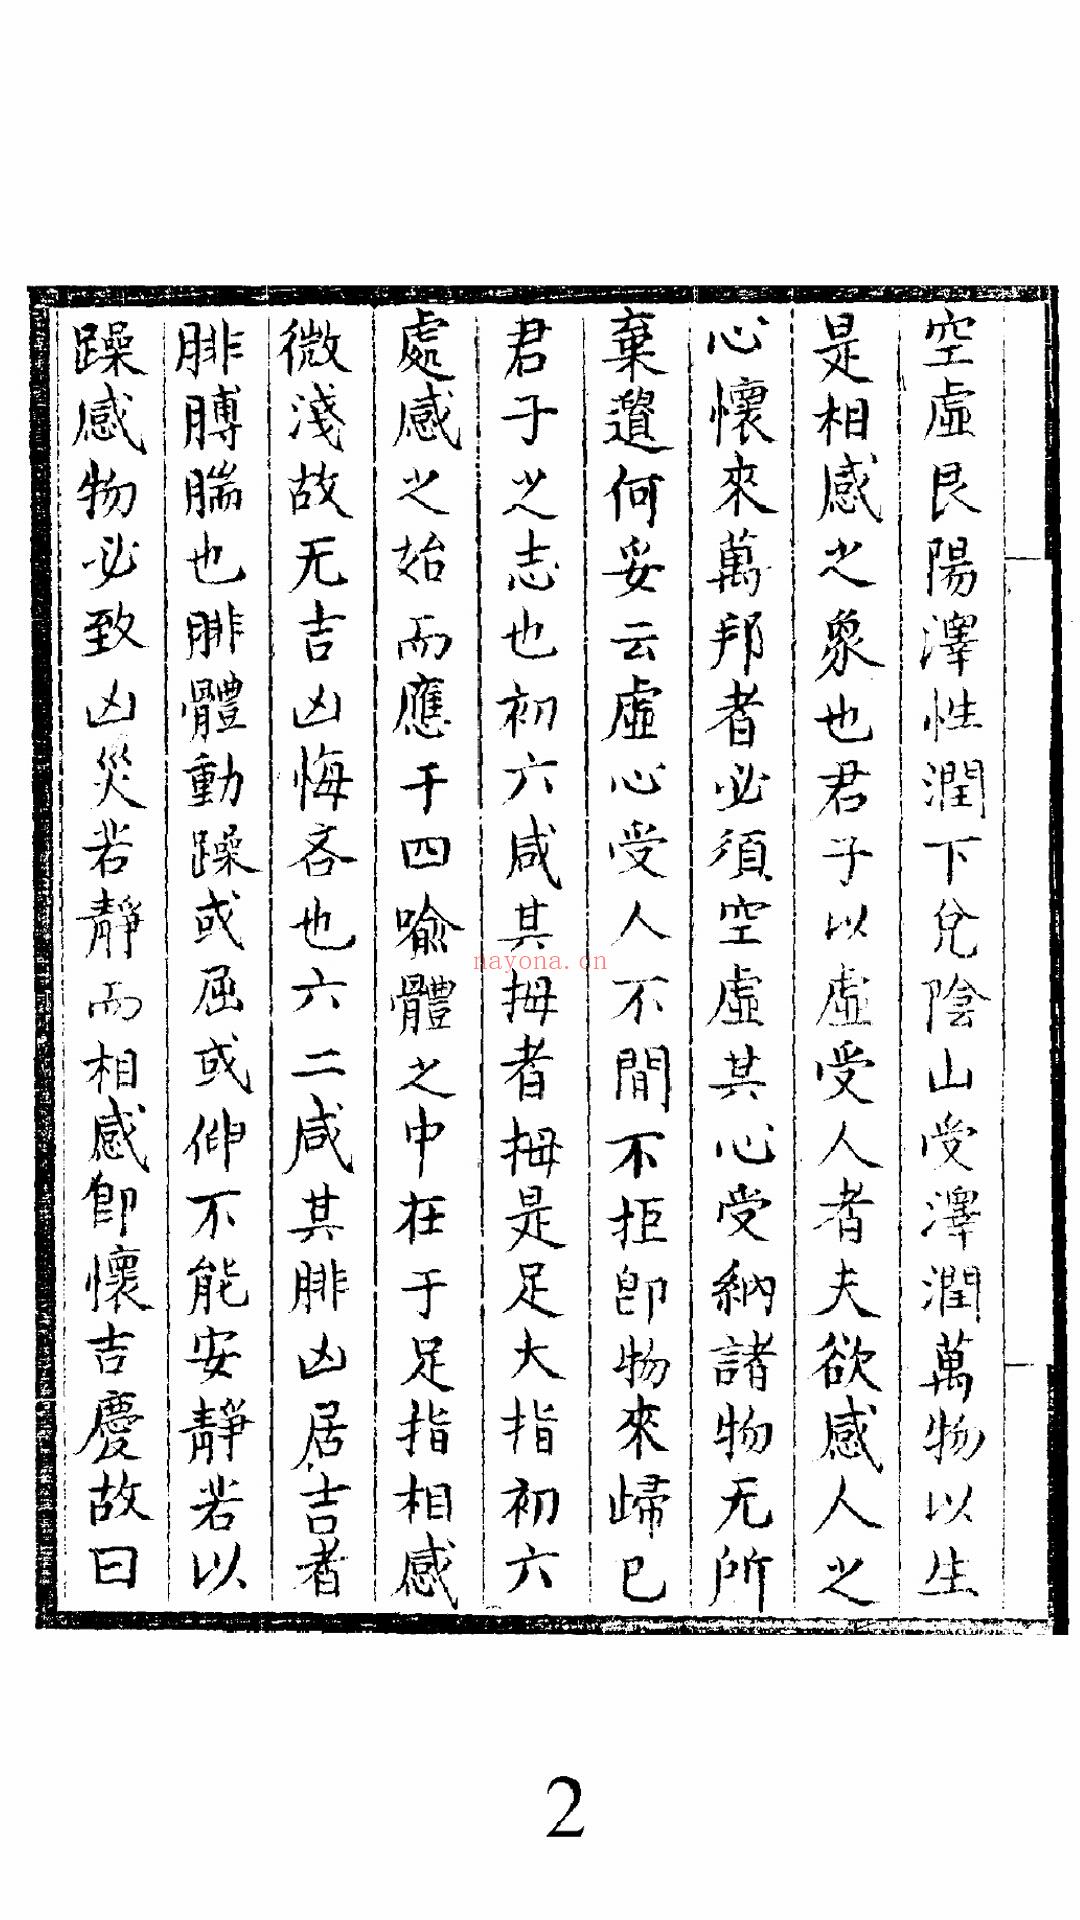 空虛艮陽澤性潤下兌陰山受澤潤萬物以生
是相感之象也君子以虛受人者夫欲感人之
心懷來萬邦者必須空虛其心受納諸物无所
棄遺何妥云虛心受人不間不拒即物來歸已
君子之志也初六咸其拇者拇是足大指初六
處感之始而應于四喻體之中在于足指相感
微淺故无吉凶悔吝也六二咸其腓凶居吉者
腓膞腨也腓體動躁或屈或伸不能安靜若以
躁感物必致凶災若靜而相感即懷吉慶故曰
nayona.cn
2